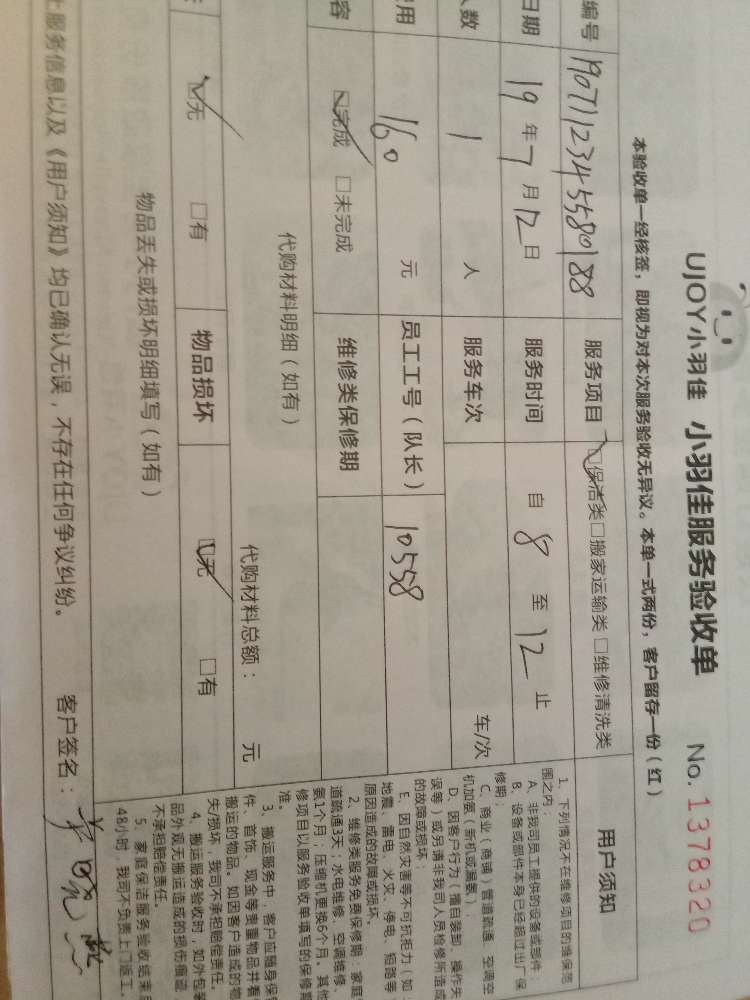 UJOY小羽佳 小羽佳服务验收单 No. 1378320
本验收单一经核签，即视为对本次服务验收无异议。本单一式两份，客户留存一份（红）
编号 1907112345580188 服务项目 ☑保洁类□搬家运输类□维修清洗类
日期 19年7月12日 服务时间 自8至12止
人数 1人 服务车次 车/次
用 160元 员工工号（队长） 10558
容 ☑完成 □未完成 维修类保修期
代购材料明细（如有） 代购材料总额： 元
☑无 □有 物品损坏 ☑无 □有
物品丢失或损坏明细填写（如有）
上服务信息以及《用户须知》均已确认无误，不存在任何争议纠纷。 客户签名：
用户须知
1、下列情况不在维修项目的维保范
围之内：
A、非我司员工提供的设备或部件；
B、设备或部件本身已经超过出厂保
修期；
C、商业（商铺）管道疏通、空调空
机加氨（新机或漏氨）；
D、因客户行为（擅自装卸、操作失
误等）或另请非我司人员检修所造成
的故障或损坏；
E、因自然灾害等不可抗拒力（如
地震、雷电、火灾、停电、短路等
原因造成的故障或损坏。
2、维修类服务免费保修期：家庭
道疏通3天；水电维修、空调维修
氨1个月；压缩机更换6个月。其他
修项目以服务验收单填写的保修期
准。
3、搬运服务中，客户应随身保管
件、首饰、现金等贵重物品并看
搬运的物品。如因客户造成的物
失/损坏，我司不承担赔偿责任。
4、搬运服务验收时，如外包装
品外观无搬运造成的损伤痕迹
不承担赔偿责任。
5、家庭保洁服务验收结束后
48小时，我司不负责上门返工。